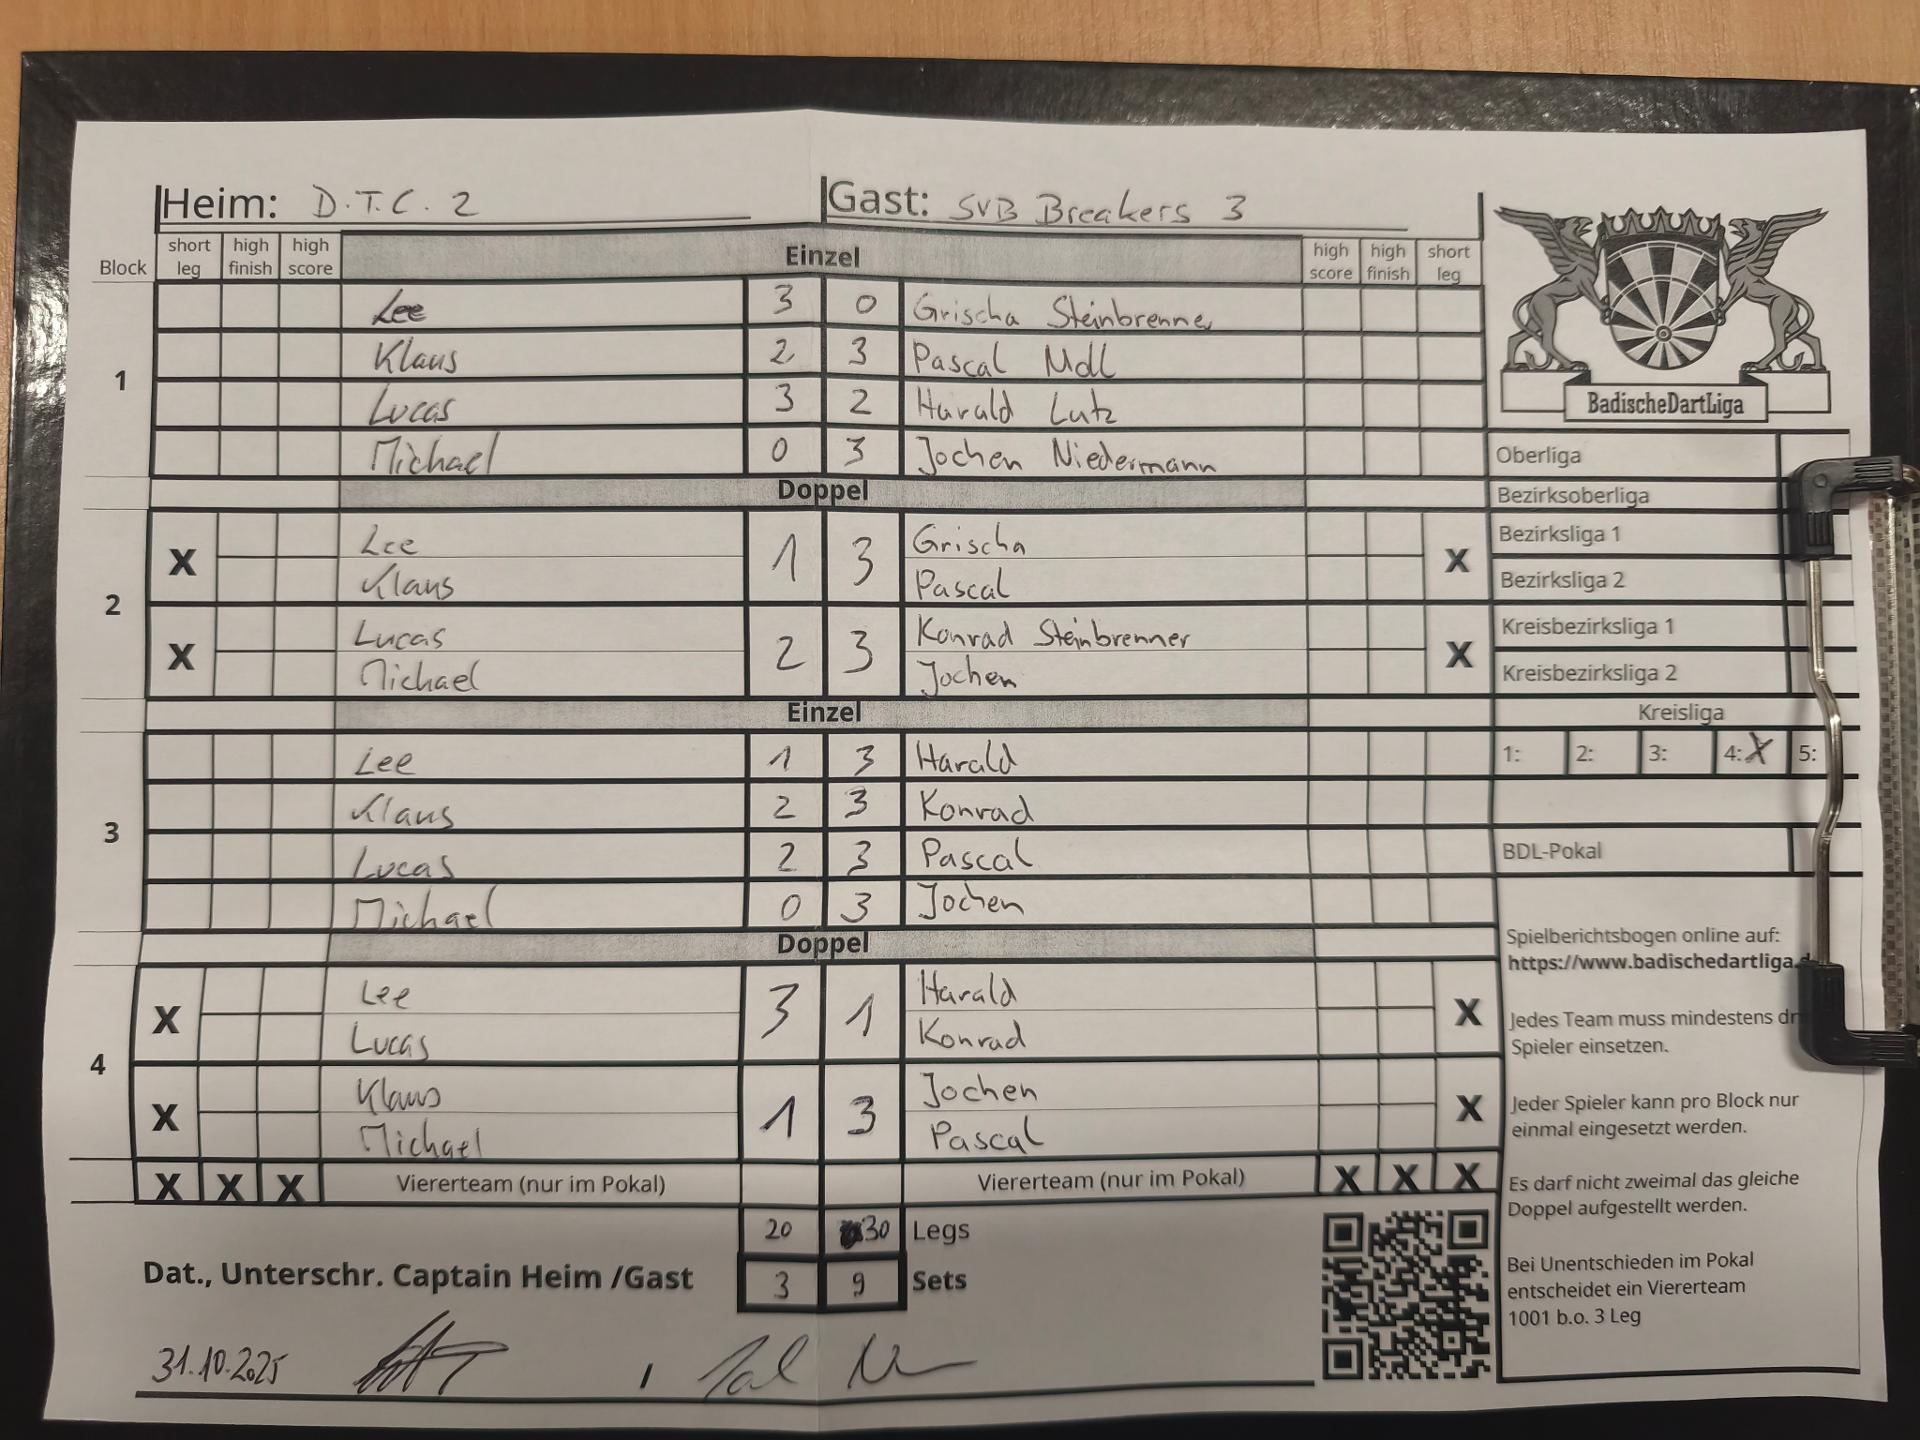 Heim: D.T.C. 2 Gast: SVB Breakers 3
Block short leg high finish high score Einzel high score high finish short leg
1
Lee 3 0 Grischa Steinbrenner
Klaus 2 3 Pascal Mdl
Lucas 3 2 Harald Lutz
Michael 0 3 Jochen Niedermann
Doppel
2
X Lee 1 3 Grischa X
Klaus Pascal
X Lucas 2 3 Konrad Steinbrenner X
Michael Jochen
Einzel
3
Lee 1 3 Harald
Klaus 2 3 Konrad
Lucas 2 3 Pascal
Michael 0 3 Jochen
Doppel
4
X Lee 3 1 Harald X
Lucas Konrad
X Klaus 1 3 Jochen X
Michael Pascal
X X X Viererteam (nur im Pokal) Viererteam (nur im Pokal) X X X
20 30 Legs
Dat., Unterschr. Captain Heim /Gast 3 9 Sets
31.10.2025 /
BadischeDartLiga
Oberliga
Bezirksoberliga
Bezirksliga 1
Bezirksliga 2
Kreisbezirksliga 1
Kreisbezirksliga 2
Kreisliga
1: 2: 3: 4: X 5:
BDL-Pokal
Spielberichtsbogen online auf:
https://www.badischedartliga.d
Jedes Team muss mindestens dr
Spieler einsetzen.
Jeder Spieler kann pro Block nur
einmal eingesetzt werden.
Es darf nicht zweimal das gleiche
Doppel aufgestellt werden.
Bei Unentschieden im Pokal
entscheidet ein Viererteam
1001 b.o. 3 Leg